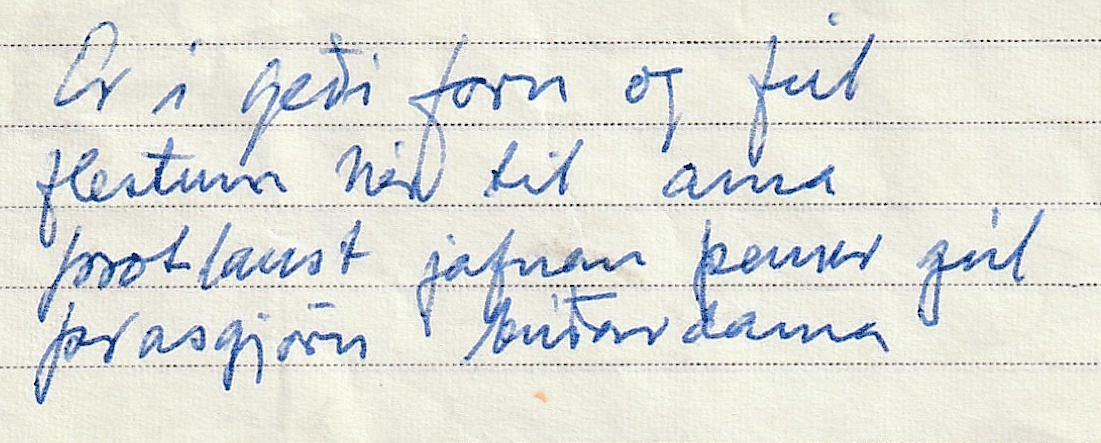 Er í geði forn og fúl
flestum hér til ama
þrotlaust jafnan þenur gúl
þrasgjörn búðardama